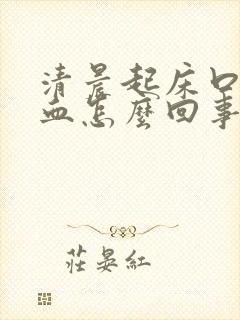 清晨起床口
血怎麼回事
莊晏紅